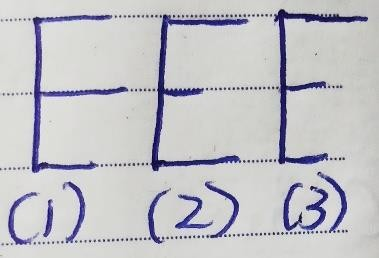 E E E
(1) (2) (3)